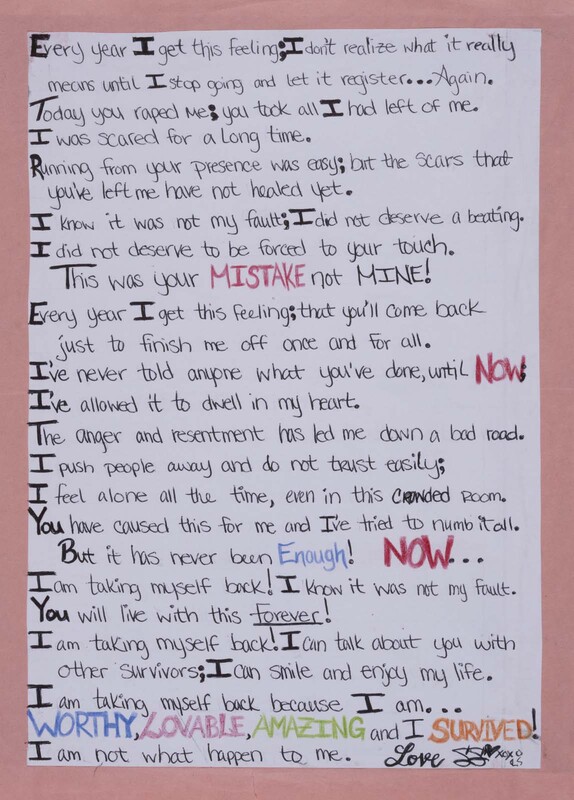 Every year I get this feeling; I don't realize what it really
means until I stop going and let it register... Again.
Today you raped me; you took all I had left of me.
I was scared for a long time.
Running from your presence was easy; but the scars that
you've left me have not healed yet.
I know it was not my fault; I did not deserve a beating.
I did not deserve to be forced to your touch.
This was your MISTAKE not MINE!
Every year I get this feeling; that you'll come back
just to finish me off once and for all.
I've never told anyone what you've done, until NOW;
I've allowed it to dwell in my heart.
The anger and resentment has led me down a bad road.
I push people away and do not trust easily;
I feel alone all the time, even in this crowded room.
You have caused this for me and I've tried to numb it all.
But it has never been Enough! NOW...
I am taking myself back! I know it was not my fault.
You will live with this forever!
I am taking myself back! I can talk about you with
other survivors; I can smile and enjoy my life.
I am taking myself back because I am...
WORTHY, LOVABLE, AMAZING and I SURVIVED!
I am not what happen to me. Love SS xoxo